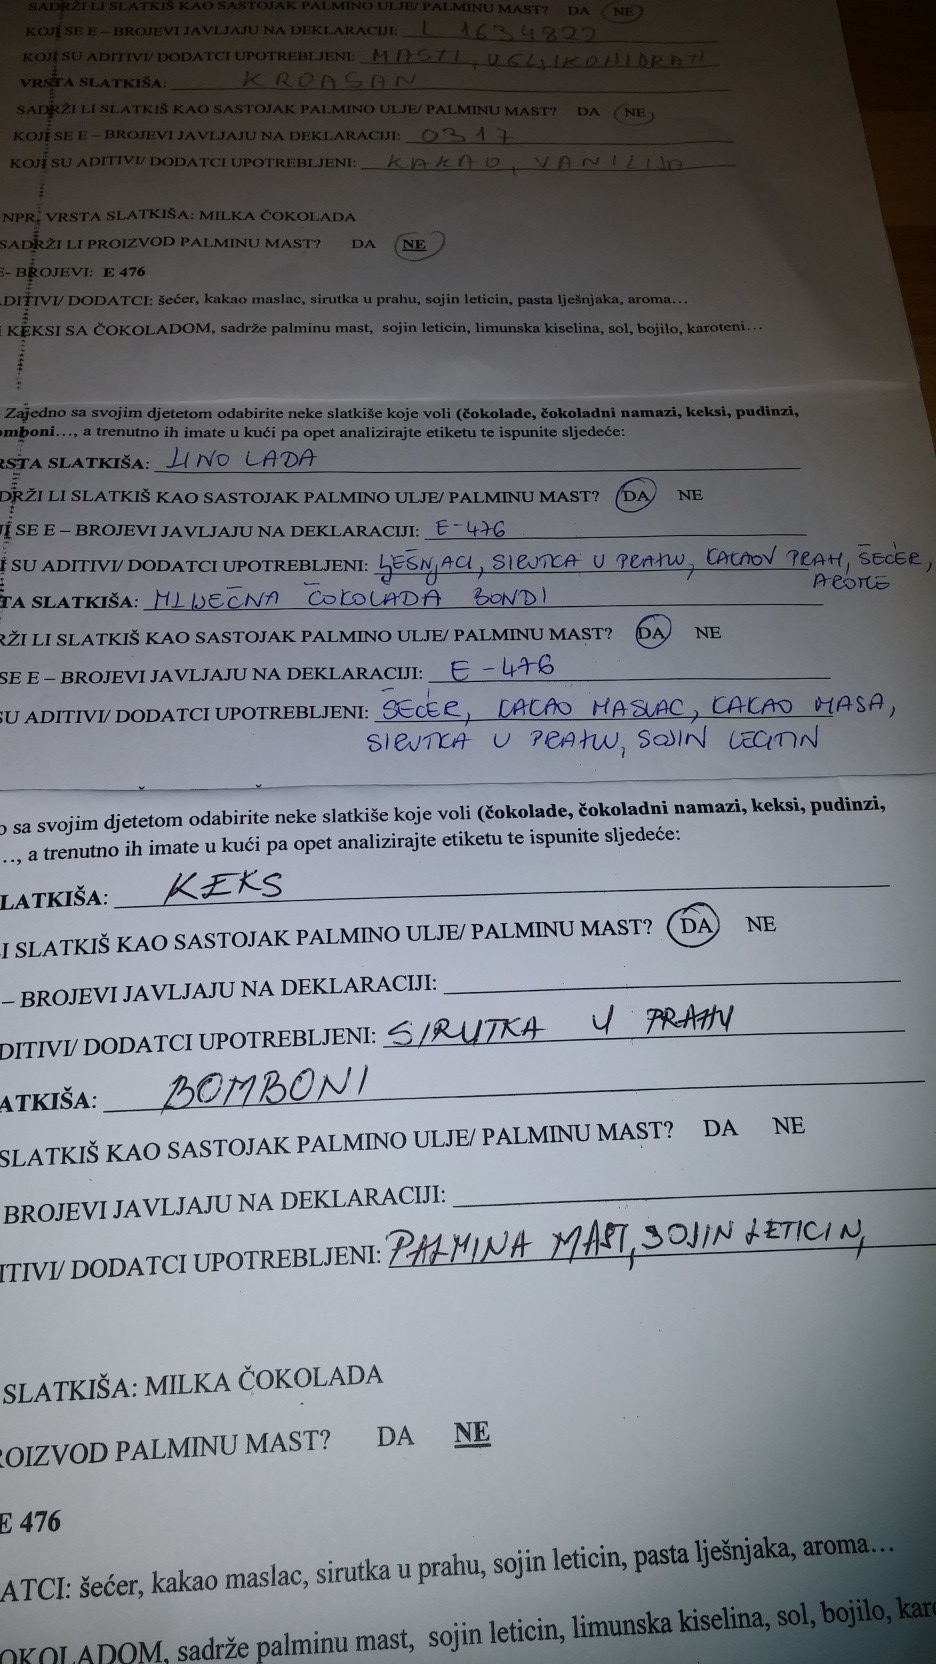 SADRŽI LI SLATKIŠ KAO SASTOJAK PALMINO ULJE/ PALMINU MAST? DA NE
KOJI SE E – BROJEVI JAVLJAJU NA DEKLARACIJI: L 1634822
KOJI SU ADITIVI/ DODATCI UPOTREBLJENI: MASTI, UGLJIKOHIDRATI
VRSTA SLATKIŠA: KROASAN
SADRŽI LI SLATKIŠ KAO SASTOJAK PALMINO ULJE/ PALMINU MAST? DA NE
KOJI SE E – BROJEVI JAVLJAJU NA DEKLARACIJI: 0317
KOJI SU ADITIVI/ DODATCI UPOTREBLJENI: KAKAO, VANILIJA
NPR. VRSTA SLATKIŠA: MILKA ČOKOLADA
SADRŽI LI PROIZVOD PALMINU MAST? DA NE
E- BROJEVI: E 476
ADITIVI/ DODATCI: šećer, kakao maslac, sirutka u prahu, sojin leticin, pasta lješnjaka, aroma…
I KEKSI SA ČOKOLADOM, sadrže palminu mast, sojin leticin, limunska kiselina, sol, bojilo, karoteni…
Zajedno sa svojim djetetom odabirite neke slatkiše koje voli (čokolade, čokoladni namazi, keksi, pudinzi,
omboni…, a trenutno ih imate u kući pa opet analizirajte etiketu te ispunite sljedeće:
RSTA SLATKIŠA: LINO LADA
DRŽI LI SLATKIŠ KAO SASTOJAK PALMINO ULJE/ PALMINU MAST? DA NE
JI SE E – BROJEVI JAVLJAJU NA DEKLARACIJI: E-476
I SU ADITIVI/ DODATCI UPOTREBLJENI: LJEŠNJACI, SIRUTKA U PRAHU, KAKAOV PRAH, ŠEĆER,
AROME
TA SLATKIŠA: MLIJEČNA ČOKOLADA BONDI
RŽI LI SLATKIŠ KAO SASTOJAK PALMINO ULJE/ PALMINU MAST? DA NE
SE E – BROJEVI JAVLJAJU NA DEKLARACIJI: E-476
SU ADITIVI/ DODATCI UPOTREBLJENI: ŠEĆER, KAKAO MASLAC, KAKAO MASA,
SIRUTKA U PRAHU, SOJIN LECITIN
o sa svojim djetetom odabirite neke slatkiše koje voli (čokolade, čokoladni namazi, keksi, pudinzi,
…, a trenutno ih imate u kući pa opet analizirajte etiketu te ispunite sljedeće:
LATKIŠA: KEKS
I SLATKIŠ KAO SASTOJAK PALMINO ULJE/ PALMINU MAST? DA NE
– BROJEVI JAVLJAJU NA DEKLARACIJI:
DITIVI/ DODATCI UPOTREBLJENI: SIRUTKA U PRAHU
ATKIŠA: BOMBONI
SLATKIŠ KAO SASTOJAK PALMINO ULJE/ PALMINU MAST? DA NE
BROJEVI JAVLJAJU NA DEKLARACIJI:
ITIVI/ DODATCI UPOTREBLJENI: PALMINA MAST, SOJIN LETICIN,
SLATKIŠA: MILKA ČOKOLADA
ROIZVOD PALMINU MAST? DA NE
E 476
ATCI: šećer, kakao maslac, sirutka u prahu, sojin leticin, pasta lješnjaka, aroma…
OKOLADOM, sadrže palminu mast, sojin leticin, limunska kiselina, sol, bojilo, karo